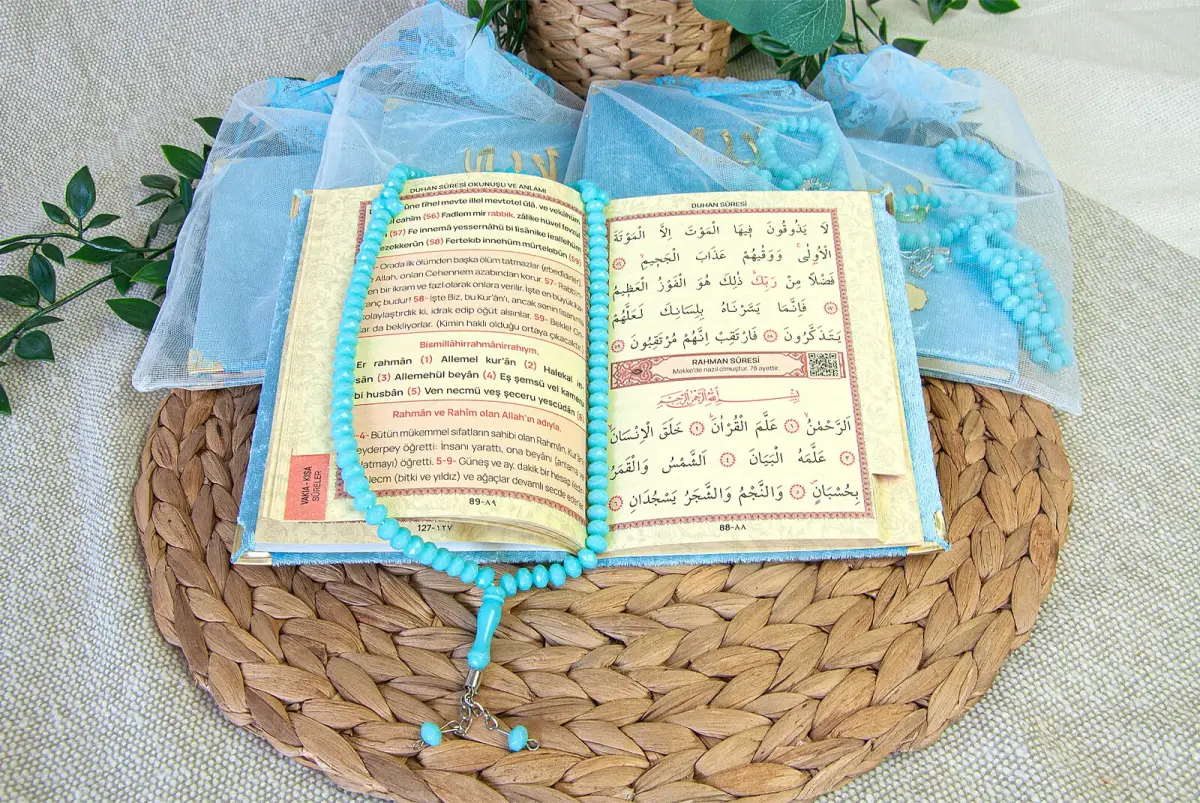 DUHAN SÛRESİ OKUNUŞU VE ANLAMI
ûne fîhel mevte illel mevtetel ûlâ, ve vekâhüm
cahîm (56) Fadlem mir rabbik, zâlike hüvel fevzül
(57) Fe innemâ yessernâhü bi lisânike leallehüm
yetezekkerûn (58) Fertekıb innehüm mürtekıbûn (59)
Orada ilk ölümden başka ölüm tatmazlar (ebedîdirler)
Allah, onları Cehennem azabından korur. 57- Rabbin
en bir ikram ve fazl olarak onlara verilir. İşte en büyük
anç budur! 58- İşte Biz, bu Kur'ân'ı, ancak senin lisanın
kolaylaştırdık ki, idrak edip öğüt alsınlar. 59- Bekle! On
lar da bekliyorlar. (Kimin haklı olduğu ortaya çıkacaktır.)
Bismillâhirrahmânirrahıym.
Er rahmân (1) Allemel kur'ân (2) Halekal in-
sân (3) Allemehül beyân (4) Eş şemsü vel kameru
bi husbân (5) Ven necmü veş şeceru yescüdân (6)
Rahmân ve Rahîm olan Allah'ın adıyla.
-4- Bütün mükemmel sıfatların sahibi olan Rahmân, Kur'ân
peyderpey öğretti: İnsanı yarattı, ona beyânı (anlama
latmayı) öğretti. 5-9- Güneş ve ay, dakik bir hesap iledir
Necm (bitki ve yıldız) ve ağaçlar devamlı secde ederler
89-٨٩
VAKIA - KISA
SÛRELER
127-١٢٧
DUHAN SÛRESİ
لَا يَذُوقُونَ فِيهَا الْمَوْتَ اِلَّا الْمَوْتَةَ
الْاُولٰىۚ وَوَقٰيهُمْ عَذَابَ الْجَحٖيمِۙ ﴿٥٦﴾
فَضْلًا مِنْ رَبِّكَؕ ذٰلِكَ هُوَ الْفَوْزُ الْعَظٖيمُ
﴿٥٧﴾ فَاِنَّمَا يَسَّرْنَاهُ بِلِسَانِكَ لَعَلَّهُمْ
يَتَذَكَّرُونَ ﴿٥٨﴾ فَارْتَقِبْ اِنَّهُمْ مُرْتَقِبُونَ ﴿٥٩﴾
RAHMAN SÛRESİ
Mekke'de nazil olmuştur. 78 ayettir.
بِسْمِ اللّٰهِ الرَّحْمٰنِ الرَّحٖيمِ
اَلرَّحْمٰنُۙ ﴿١﴾ عَلَّمَ الْقُرْاٰنَؕ ﴿٢﴾ خَلَقَ الْاِنْسَانَۙ
﴿٣﴾ عَلَّمَهُ الْبَيَانَ ﴿٤﴾ اَلشَّمْسُ وَالْقَمَرُ
بِحُسْبَانٍۙ ﴿٥﴾ وَالنَّجْمُ وَالشَّجَرُ يَسْجُدَانِ ﴿٦﴾
88-٨٨